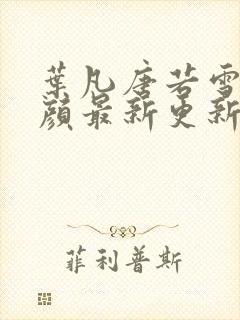 葉凡唐若雪
顔最新更新
菲利普斯